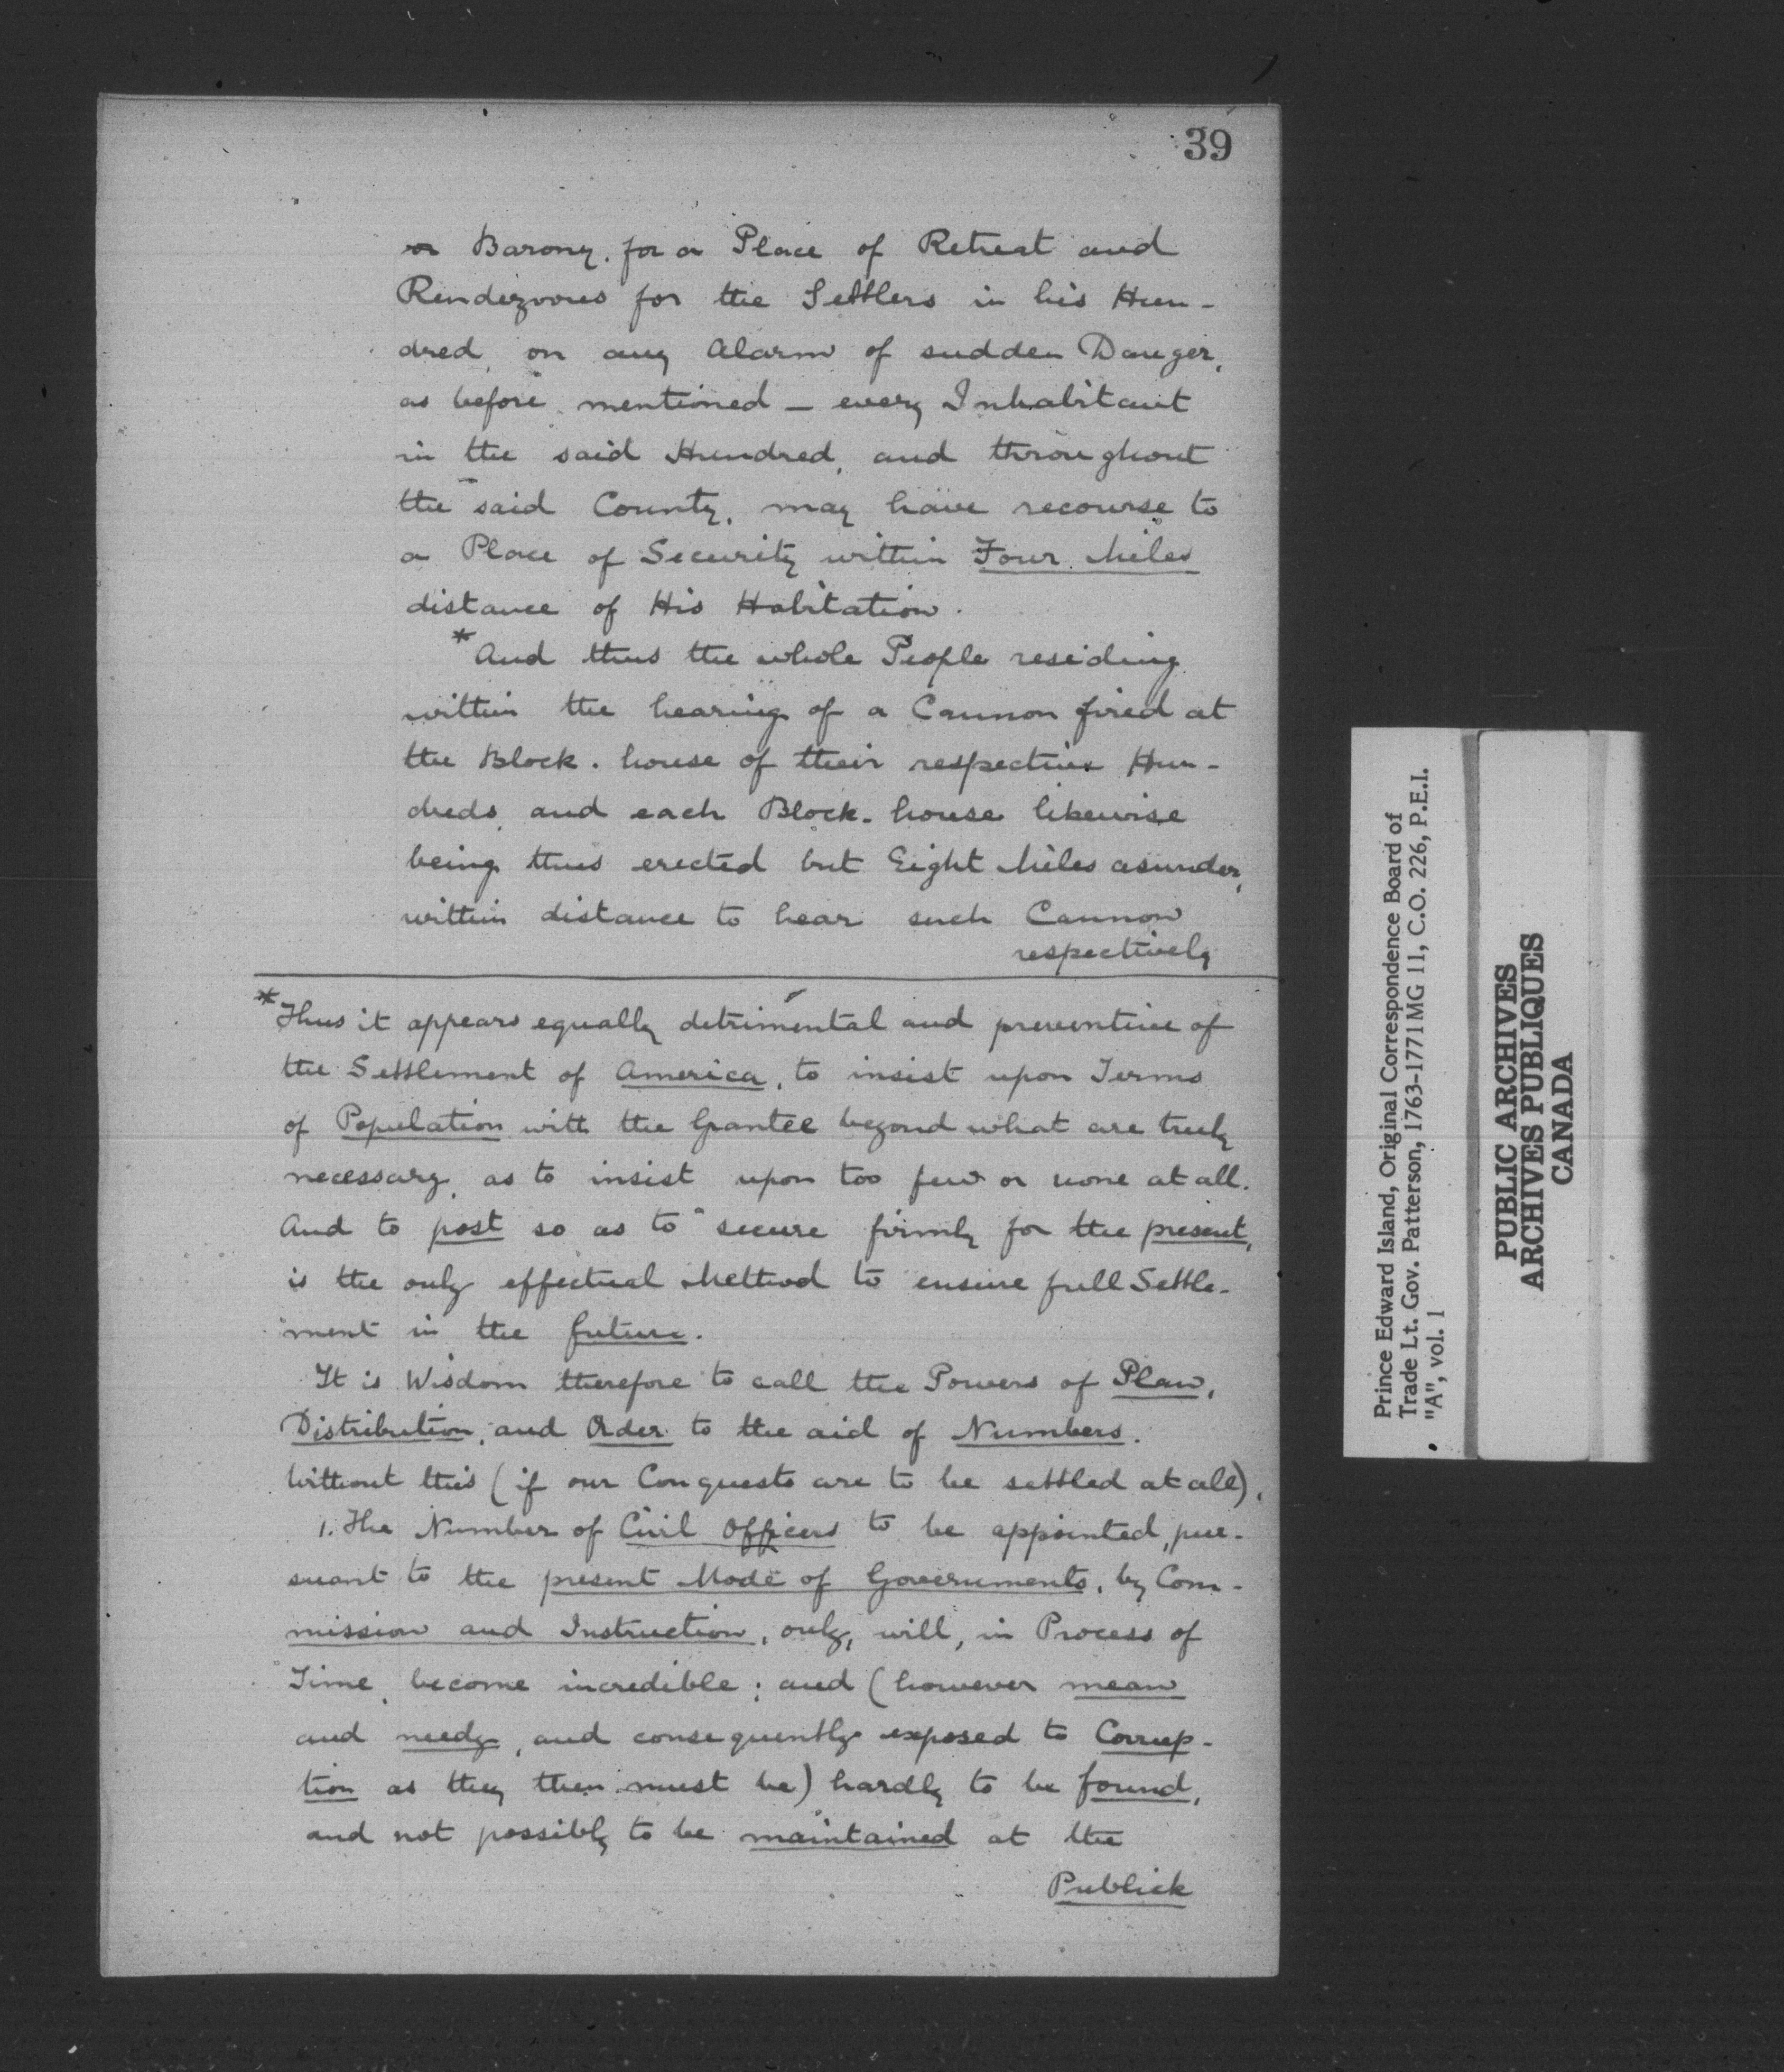 39
or Barony. for a Place of Retreat and
Rendezvous for the Settlers in his Hun-
dred, on any Alarm of sudden Danger,
as before mentioned - every Inhabitant
in the said Hundred, and throughout
the said County, may have recourse to
a Place of Security within Four Miles
distance of His Habitation.
* And thus the whole People residing
within the hearing of a Cannon fired at
the Block-house of their respective Hun-
dreds, and each Block-house likewise
being thus erected but Eight Miles asunder,
within distance to hear such Cannon
respectively
* Thus it appears equally detrimental and preventive of
the Settlement of America, to insist upon Terms
of Population with the Grantee beyond what are truly
necessary, as to insist upon too few or none at all.
And to post so as to secure firmly for the present,
is the only effectual Method to ensure full Settle-
ment in the future.
It is Wisdom therefore to call the Powers of Plan,
Distribution, and Order to the aid of Numbers.
Without this (if our Conquests are to be settled at all),
1. The Number of Civil Officers to be appointed, pur-
suant to the present Mode of Governments, by Com-
mission and Instruction, only, will, in Process of
Time, become incredible; and (however mean
and needy, and consequently exposed to Corrup-
tion as they then must be) hardly to be found,
and not possibly to be maintained at the
Publick
Prince Edward Island, Original Correspondence Board of
Trade Lt. Gov. Patterson, 1763-1771 MG 11, C.O. 226, P.E.I.
"A", vol. 1
PUBLIC ARCHIVES
ARCHIVES PUBLIQUES
CANADA